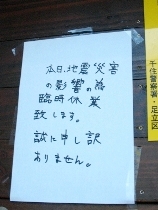 本日、地震災害
の影響の為
臨時休業
致します。
誠に申し訳
ありません。
千住警察署・足立区